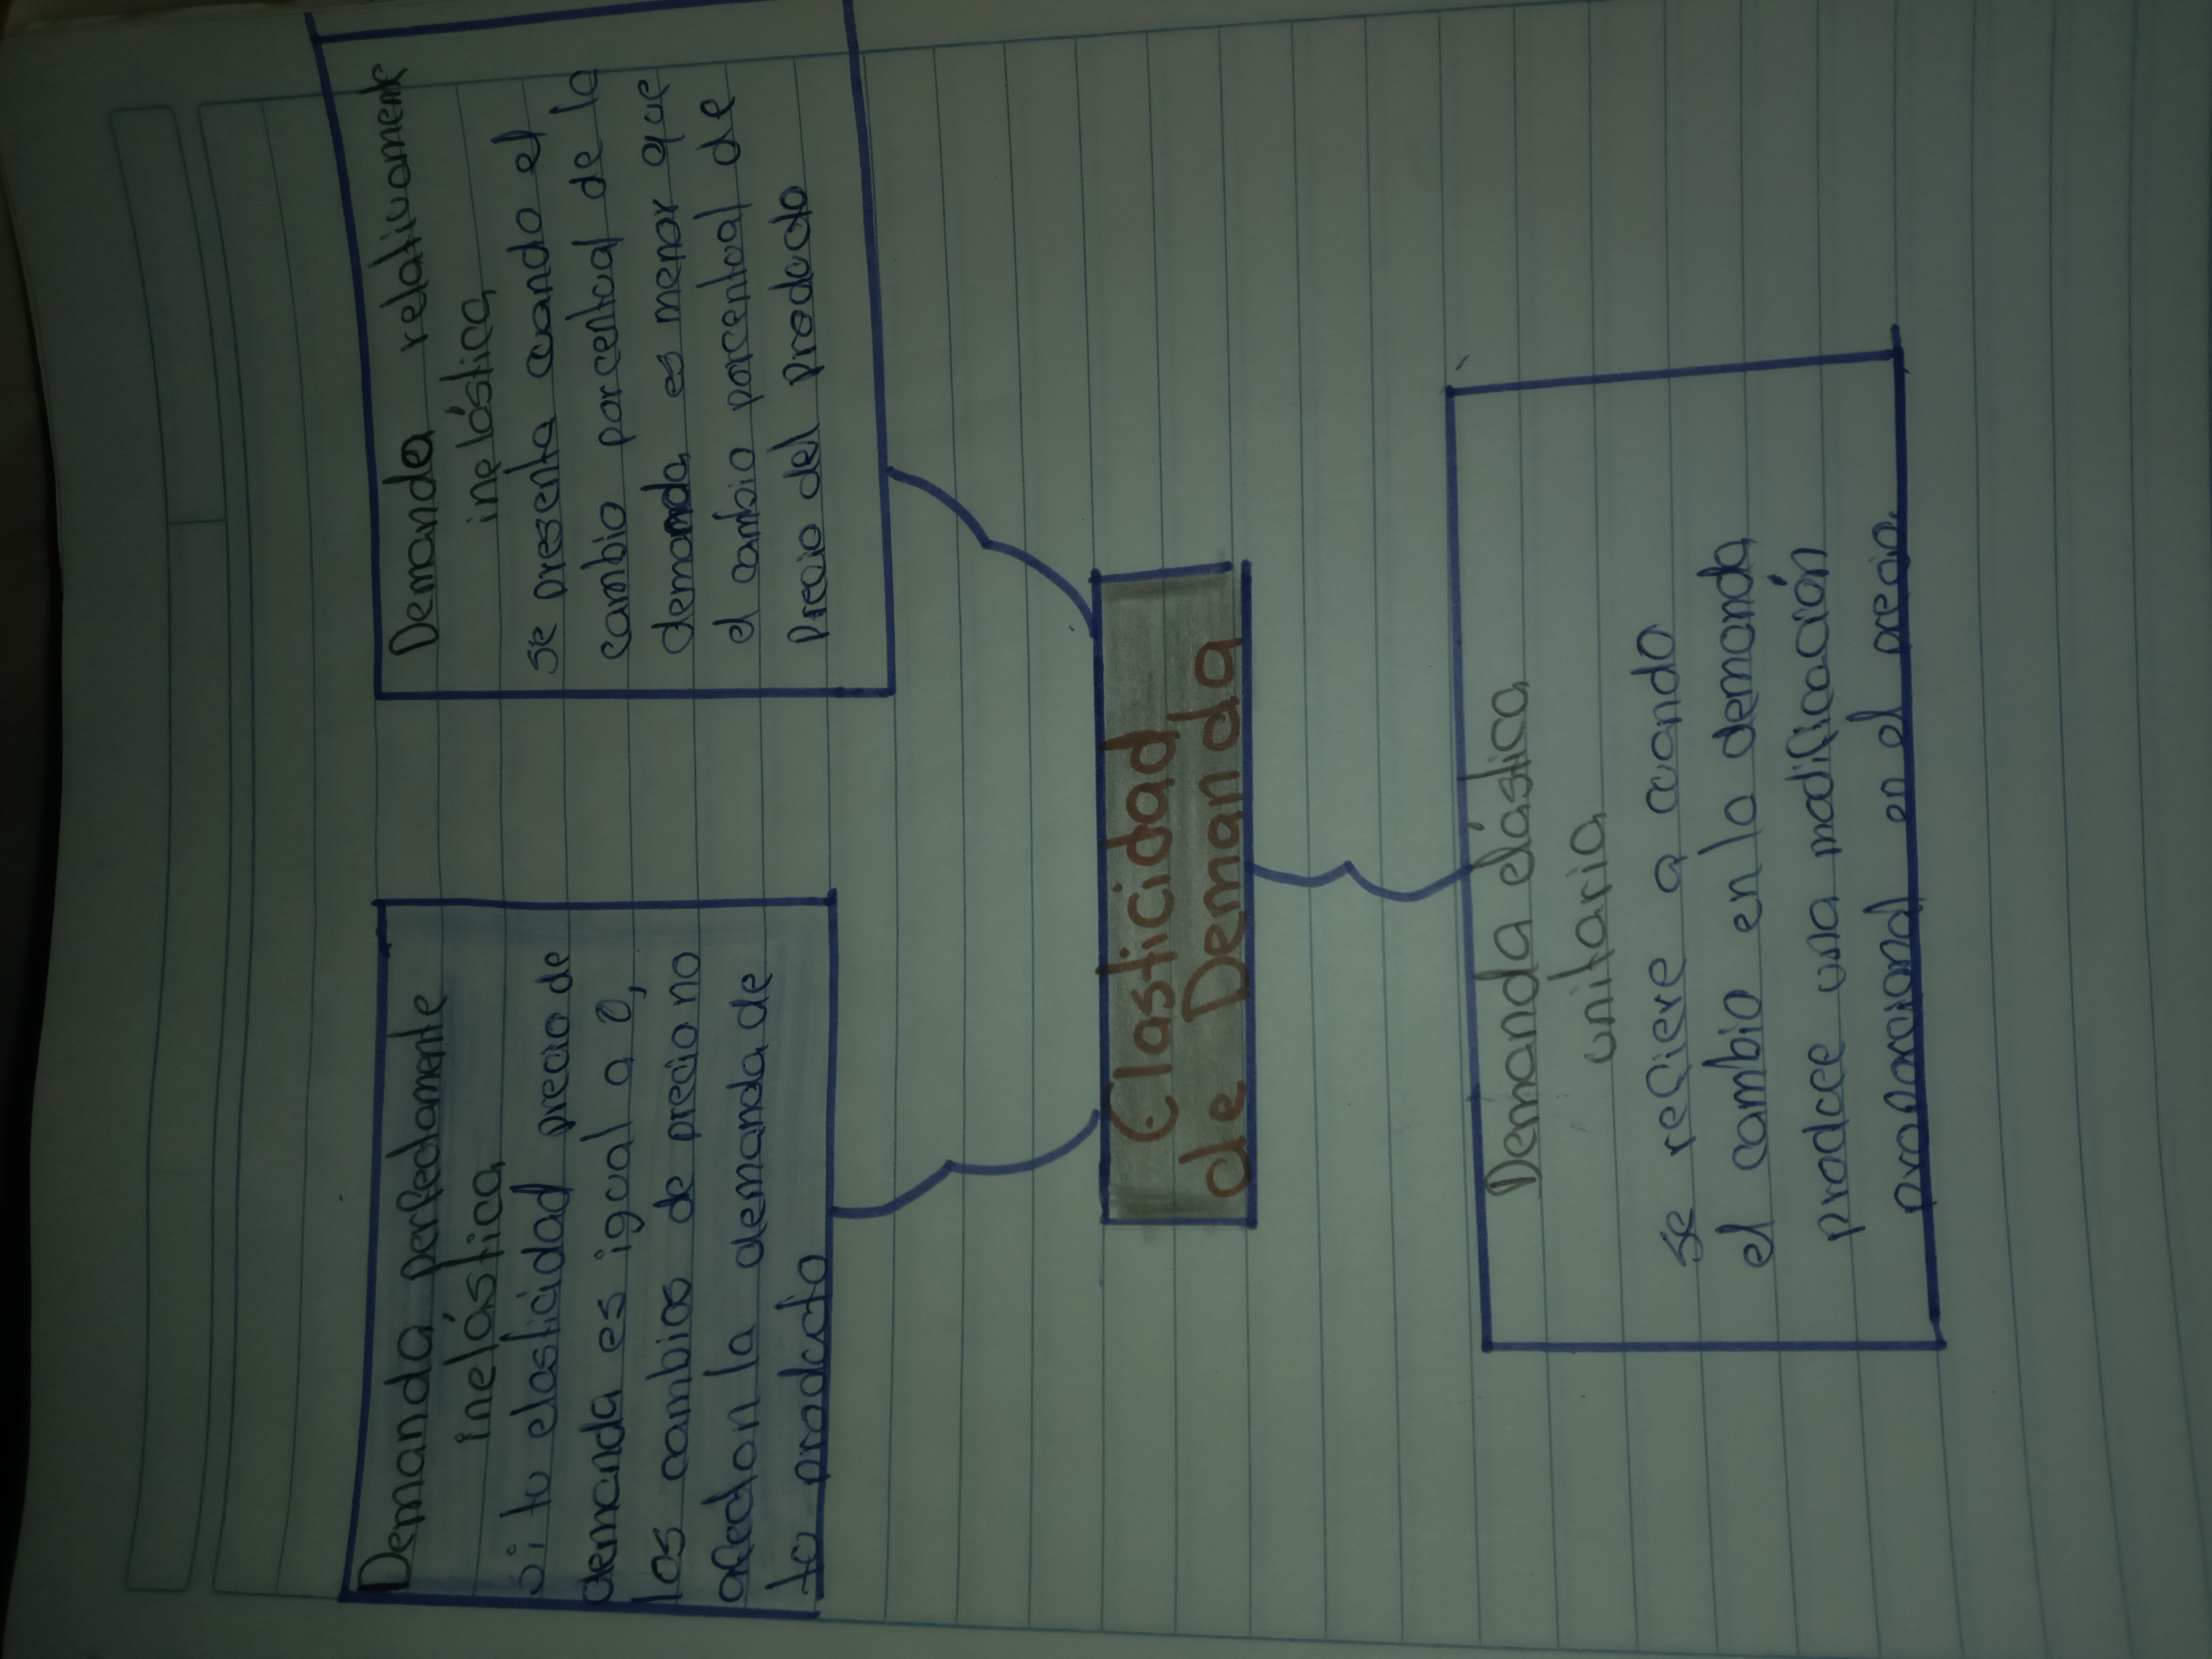 Demanda perfectamente
inelástica
si tu elasticidad precio de
demanda es igual a 0,
los cambios de precio no
afectan la demanda de
tu producto
Demanda relativamente
inelástica
se presenta cuando el
cambio porcentual de la
demanda es menor que
el cambio porcentual de
precio del producto
Elasticidad
de Demanda
Demanda elástica
unitaria
se refiere a cuando
el cambio en la demanda
produce una modificación
proporcional en el precio